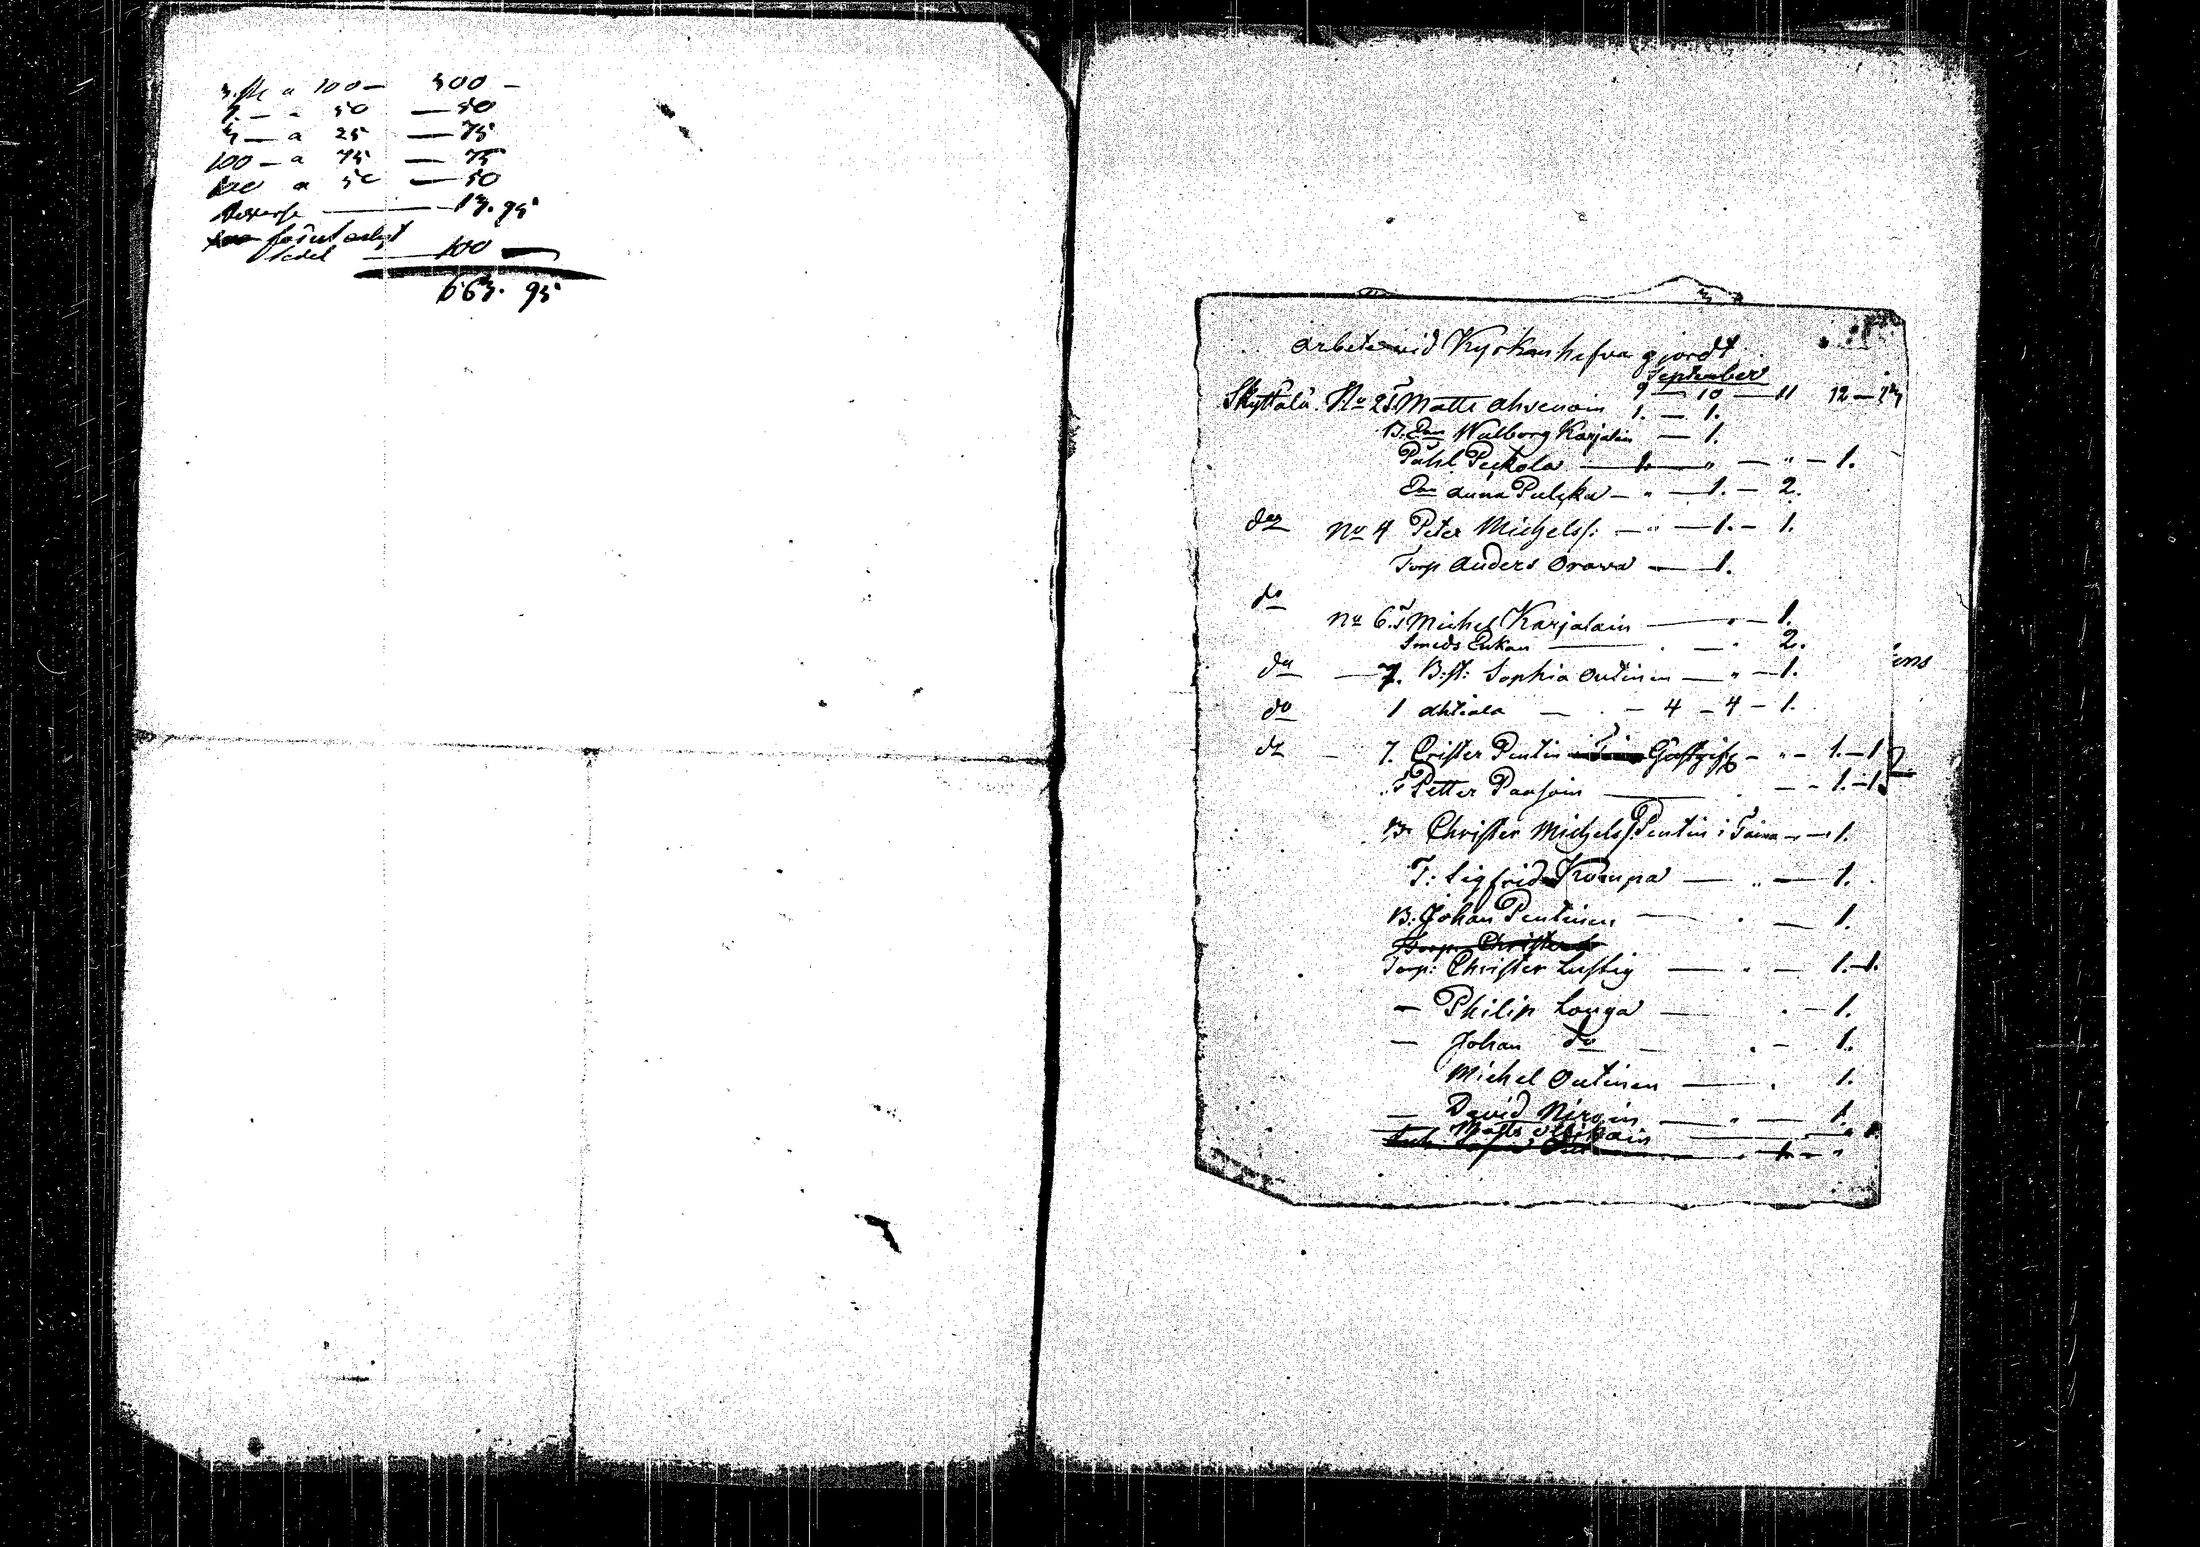 3. st a 100 — 300 —
1. — " 50 — 50
3 — a 25 — 75
100 — a 75 — 75
100 a 50 — 50
Diverse — 13. 95
förut
Sedel — 100 —
663. 95
arbete vid Kyrkan hafva gjordt
September
9 — 10 — 11 12 — 13
Skyttälä No 2 T. Matts Ahvenain 1. — 1.
B. Dn Walborg Karjalain — 1.
Påhl Peckola — 1. — " — " — 1.
Dn Anna — " — 1. — 2.
do No 4 Peter Michelss: — " — 1. — 1.
Torp Anders Orava — 1.
do
No 6. T Michel Karjalain — " — 1.
Smeds Enkan — . — " 2.
do — 7. B:st: Sophia Outinen — " — 1.
do 1 Ahtiala — . — 4 — 4 — 1.
do — 7. Crister Pentin — " — 1. — 1
T Petter — . — 1. — 1.
B Christer Michelss. Pentin i — " — 1.
T: Sigfrid — " — 1.
B: Johan Pentinen — . — 1.
Torp: Christer
Torp: Christer Lustig — " — 1. — 1.
— Philip Longa — . — 1.
— Johan do — . — 1.
Michel Outinen — . 1.
— David — " — 1.
— Matts
ens